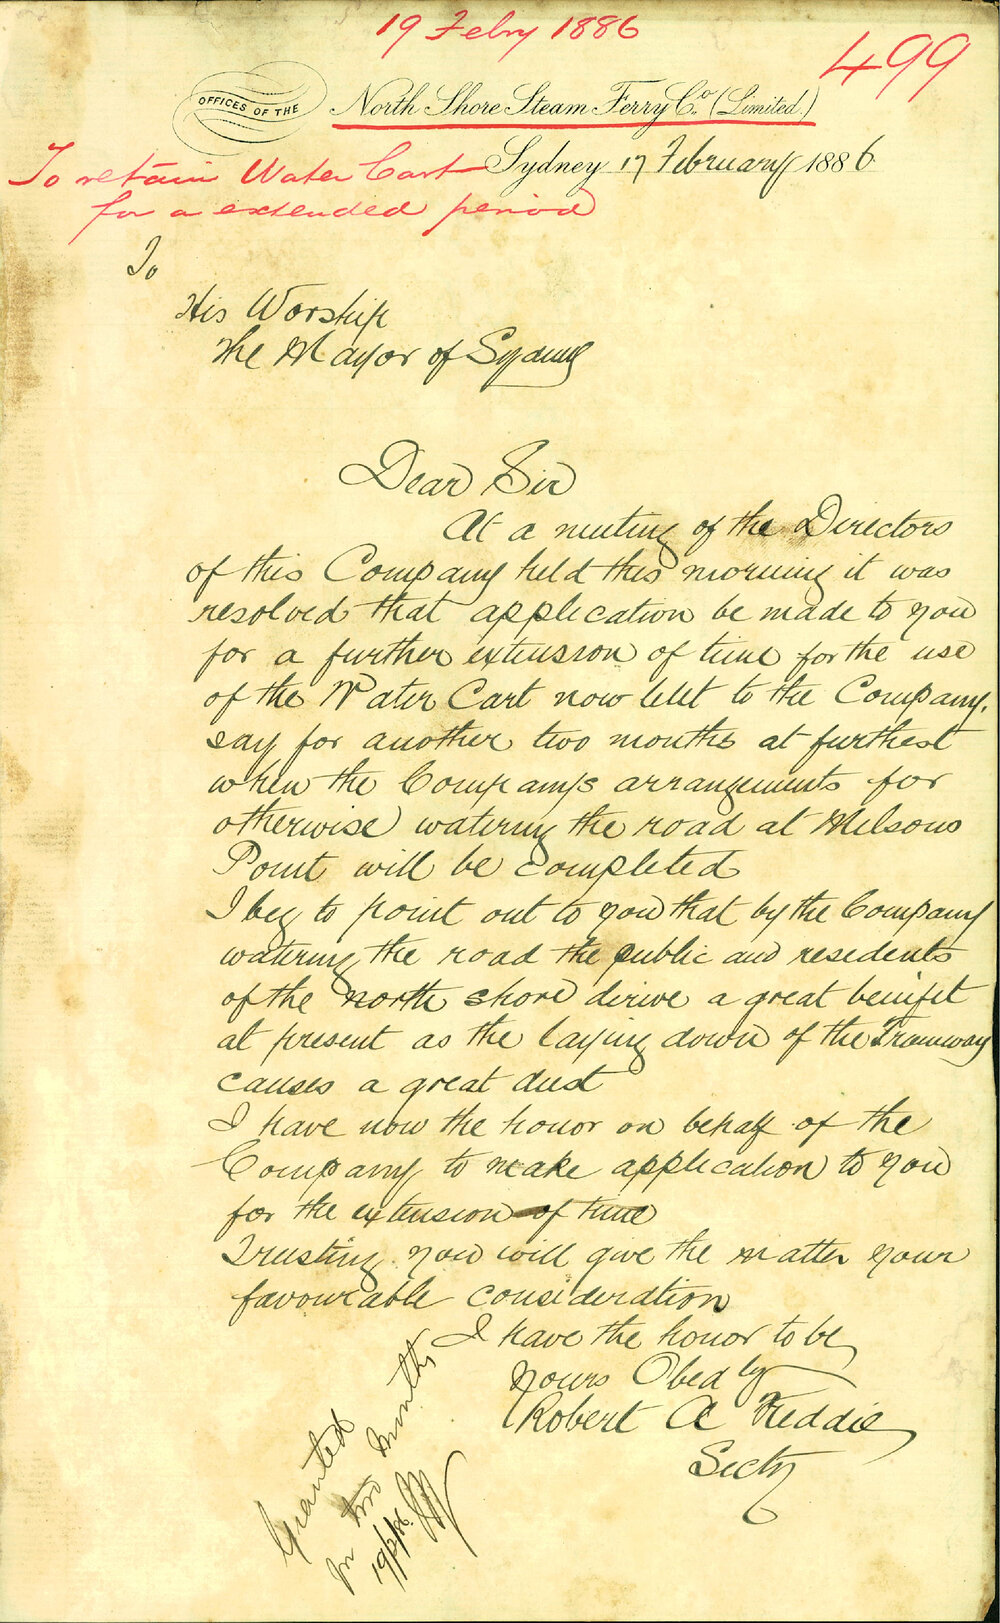 19 Febry 1886
499
OFFICES OF THE
North Shore Steam Ferry Co. (Limited.)
Sydney 17 February 1886
To retain Water Cart
for a extended period
To
His Worship
The Mayor of Sydney
Dear Sir
At a meeting of the Directors
of this Company held this morning it was
resolved that application be made to you
for a further extension of time for the use
of the Water Cart now lent to the Company.
say for another two months at furthest
when the Companys arrangements for
otherwise watering the road at Milsons
Point will be completed
I beg to point out to you that by the Company
watering the road the public and resedents
of the north shore dirive a great benifit
at present as the laying down of the Tramway
causes a great dust
I have now the honor on behalf of the
Company to make application to you
for the extension of time
Trusting you will give the matter your
favourable consideration
I have the honor to be
yours Obedly
Robert A
Secty
Granted
for two months
19/2/86